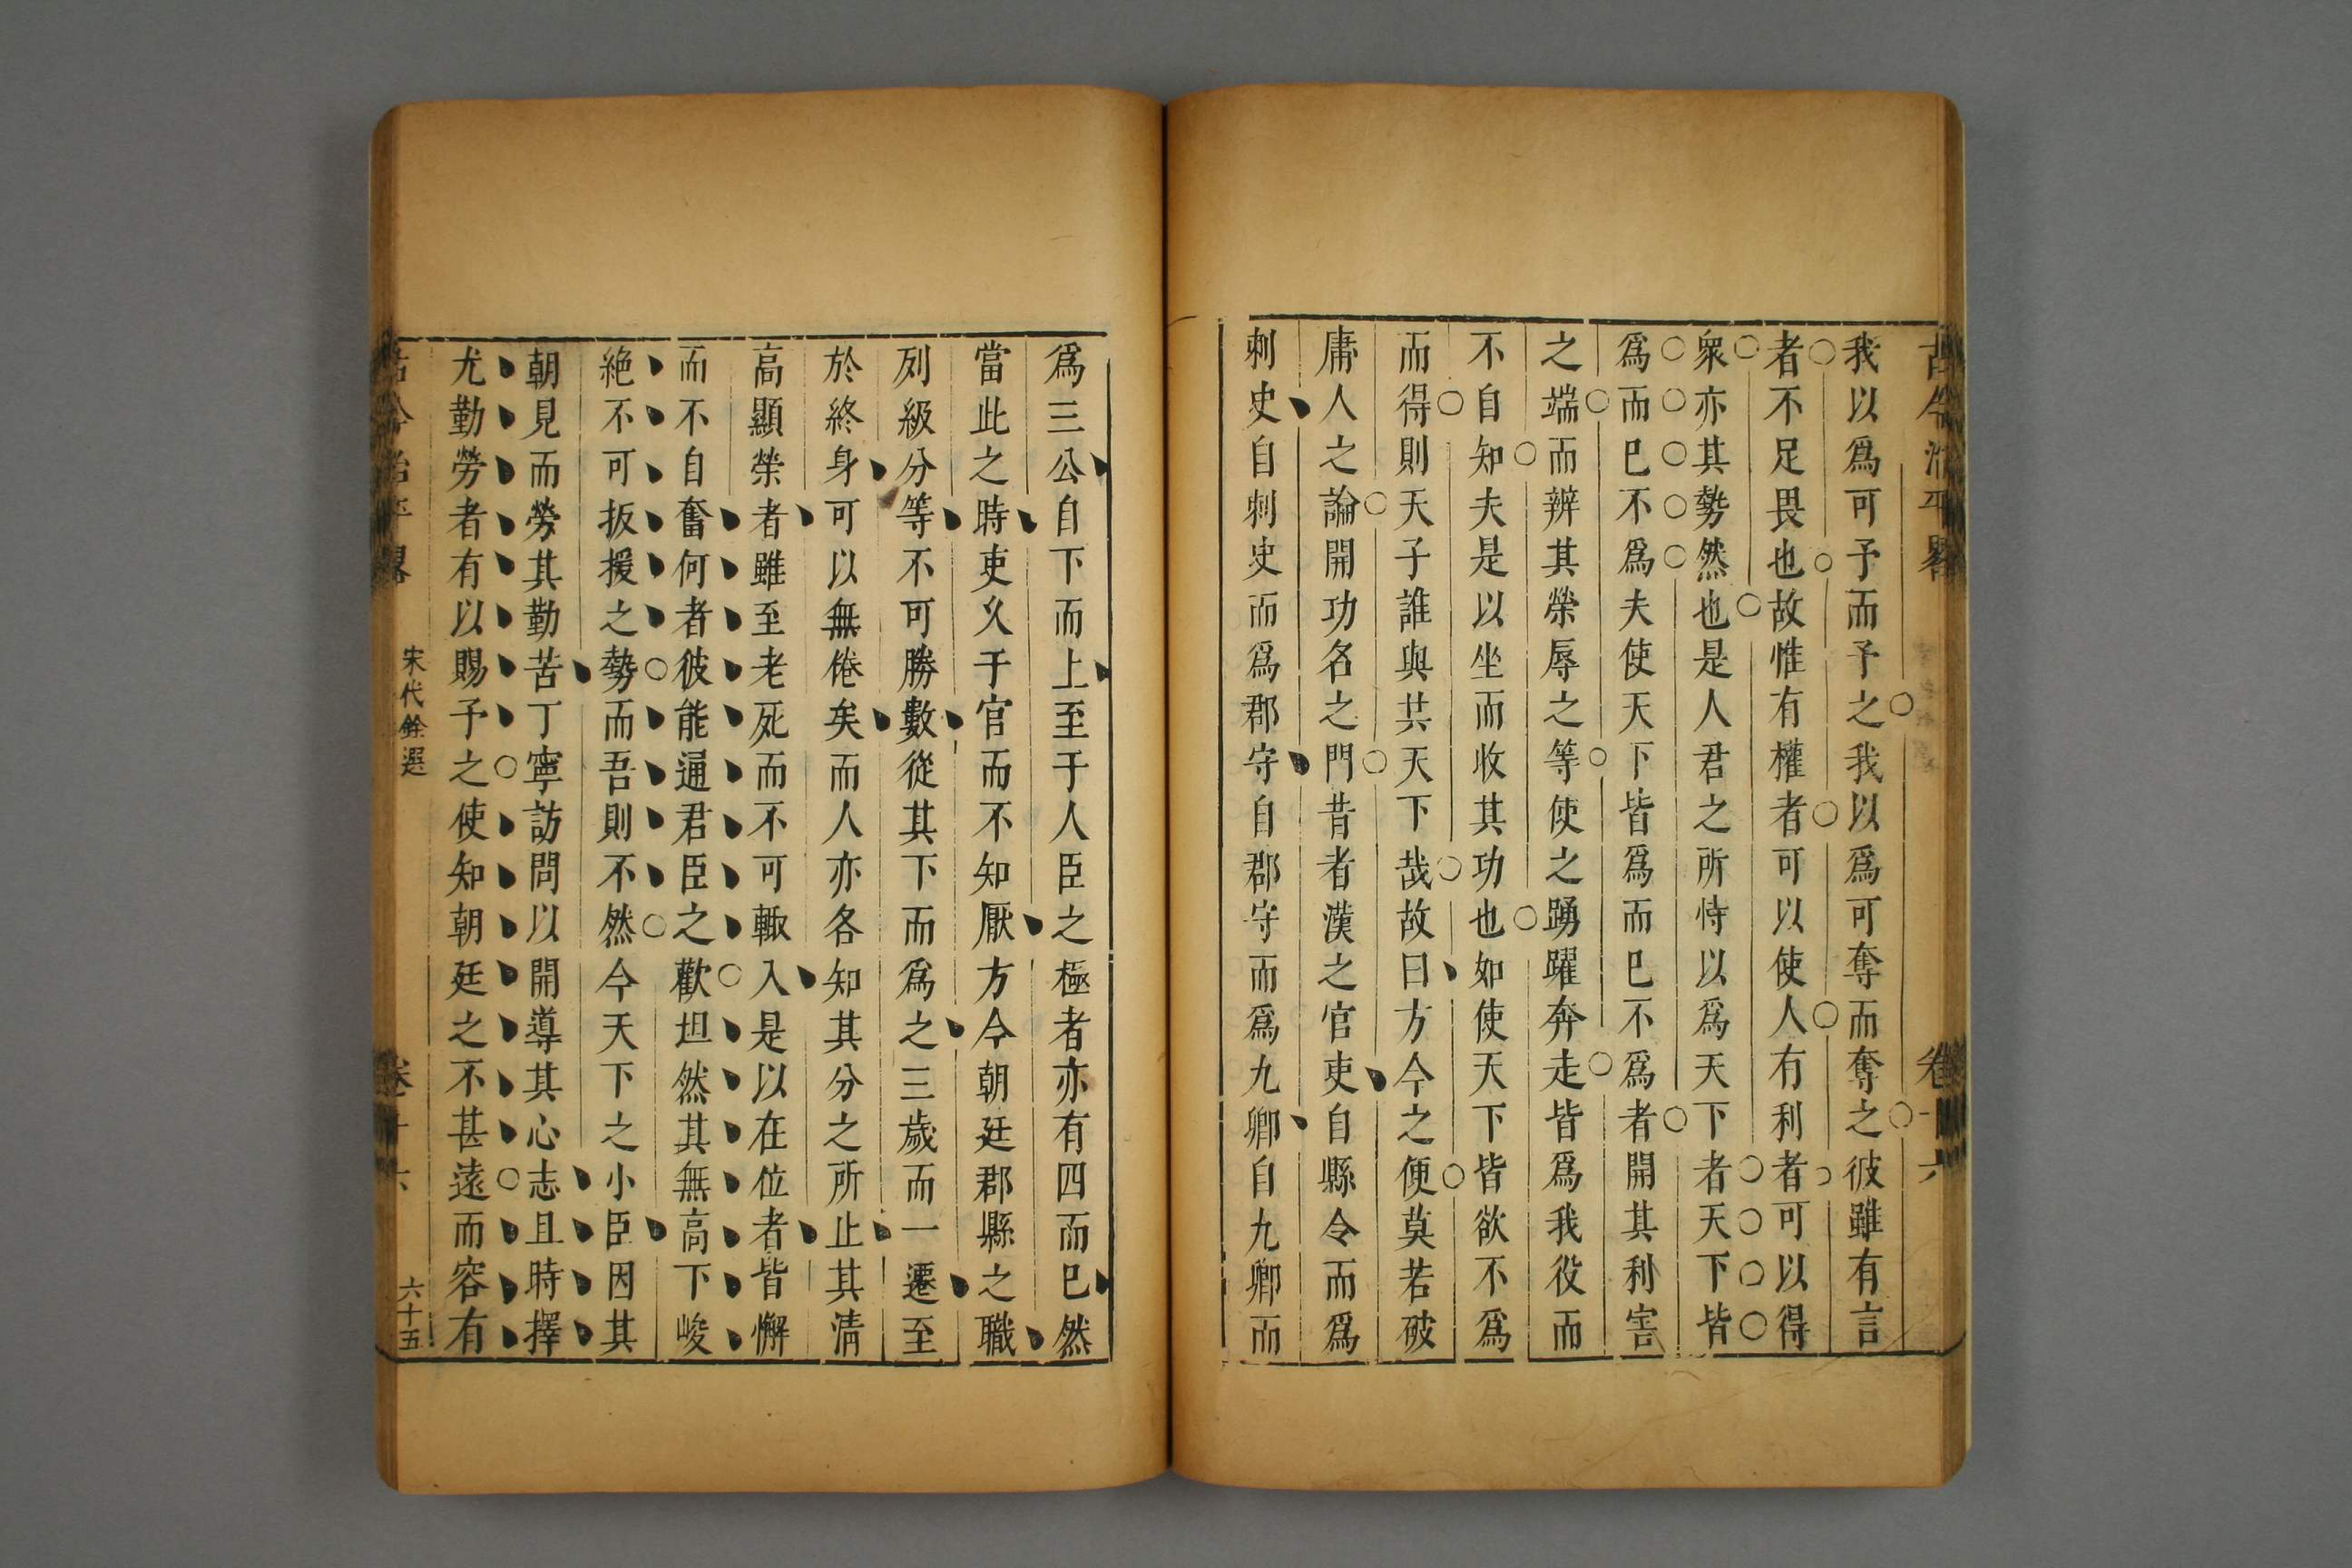 古今治平畧
卷十六
我以爲可予而予之我以爲可奪而奪之彼雖有言
者不足畏也故惟有權者可以使人有利者可以得
衆亦其勢然也是人君之所恃以爲天下者天下皆
爲而已不爲夫使天下皆爲而已不爲者開其利害
之端而辨其榮辱之等使之踴躍奔走皆爲我役而
不自知夫是以坐而收其功也如使天下皆欲不爲
而得則天子誰與共天下哉故曰方今之便莫若破
庸人之論開功名之門昔者漢之官吏自縣令而爲
刺史自刺史而爲郡守自郡守而爲九卿自九卿而
爲三公自下而上至于人臣之極者亦有四而已然
當此之時吏久于官而不知厭方今朝廷郡縣之職
列級分等不可勝數從其下而爲之三歲而一遷至
於終身可以無倦矣而人亦各知其分之所止其清
高顯榮者雖至老死而不可輙入是以在位者皆懈
而不自奮何者彼能通君臣之歡坦然其無高下峻
絶不可扳援之勢而吾則不然今天下之小臣因其
朝見而勞其勤苦丁寧訪問以開導其心志且時擇
尤勤勞者有以賜予之使知朝廷之不甚遠而容有
古今治平畧
宋代銓選
卷十六
六十五